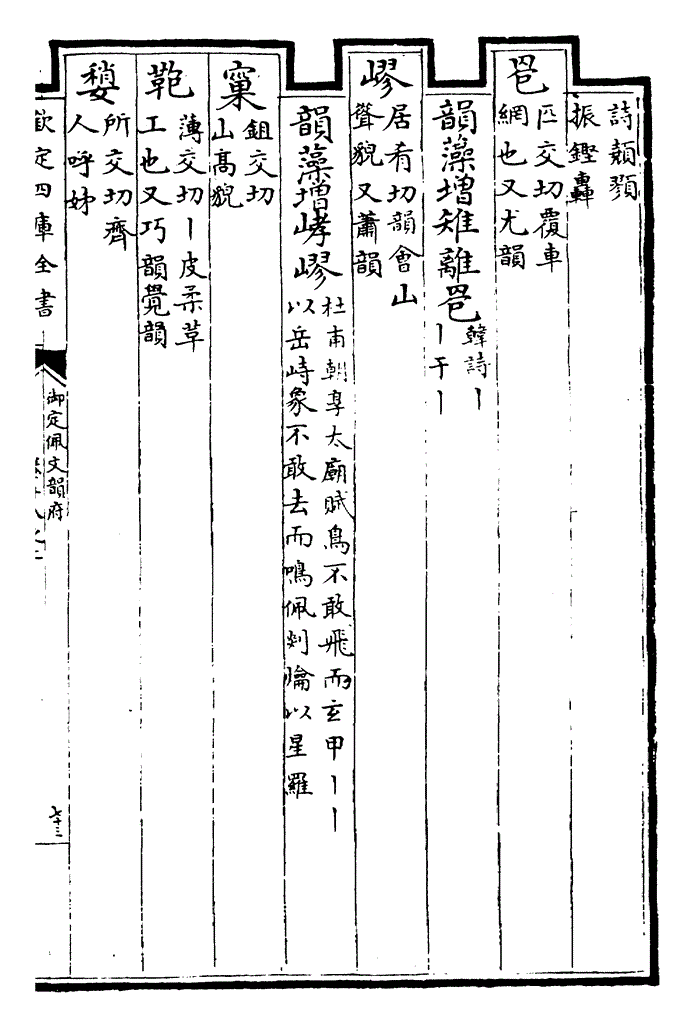 詩顟
振鏗轟
䍖
匹交切覆車
網也又尤韻
韻藻增雉離䍖
韓詩丨
丨于丨
嵺
居肴切韻會山
聲貌又蕭韻
韻藻增嵺
杜甫朝享太廟賦鳥不敢飛而玄甲丨丨
以岳峙象不敢去而鳴佩剡爚以星羅
窼
鉏交切
山高貌
鞄
薄交切丨皮柔草
工也又巧韻覺韻
所交切齊
人呼姊
欽定四庫全書
御定佩文韻府
七十三